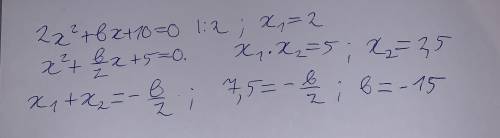 2x²+вx+10=0 |:2 ; x₁=2
x²+в/2x+5=0. x₁·x₂=5 ; x₂=2,5
x₁+x₂=-в/2 ; 7,5=-в/2 ; в=-15